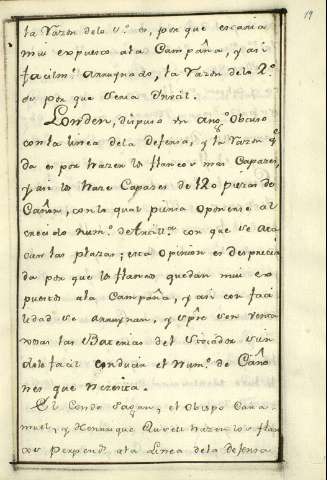 19
la Razon delo 1.º es, por que estaria
mui expuesto ala Campaña, y asi
facilm.te arruynado, la Razon delo 2.º
es por que seria Inutil.
Londen, dispuso un ang.º Obtuso
con la linea dela defensa, y la Razon q.e
da es por hazer los flancos mas Capazes,
y asi los hare Capazes de 120 piezas de
Cañon, con lo qual piensa oponerse al
crecido num.º de Artill.a con que se ata
can las plazas; esta Opinion es desprecia
da por que los flancos quedan mui ex
puestos ala Campaña, y asi con faci
lidad se arruynan, y spre son venta
josas las Baterias del Sitiador, sien
dole facil conducir el Num.º de Caño
nes que necesita.
El Conde Pagan, el Obispo Cara
muel, y Hennrique hazen los flan
cos perpend.s ala Linea dela defensa